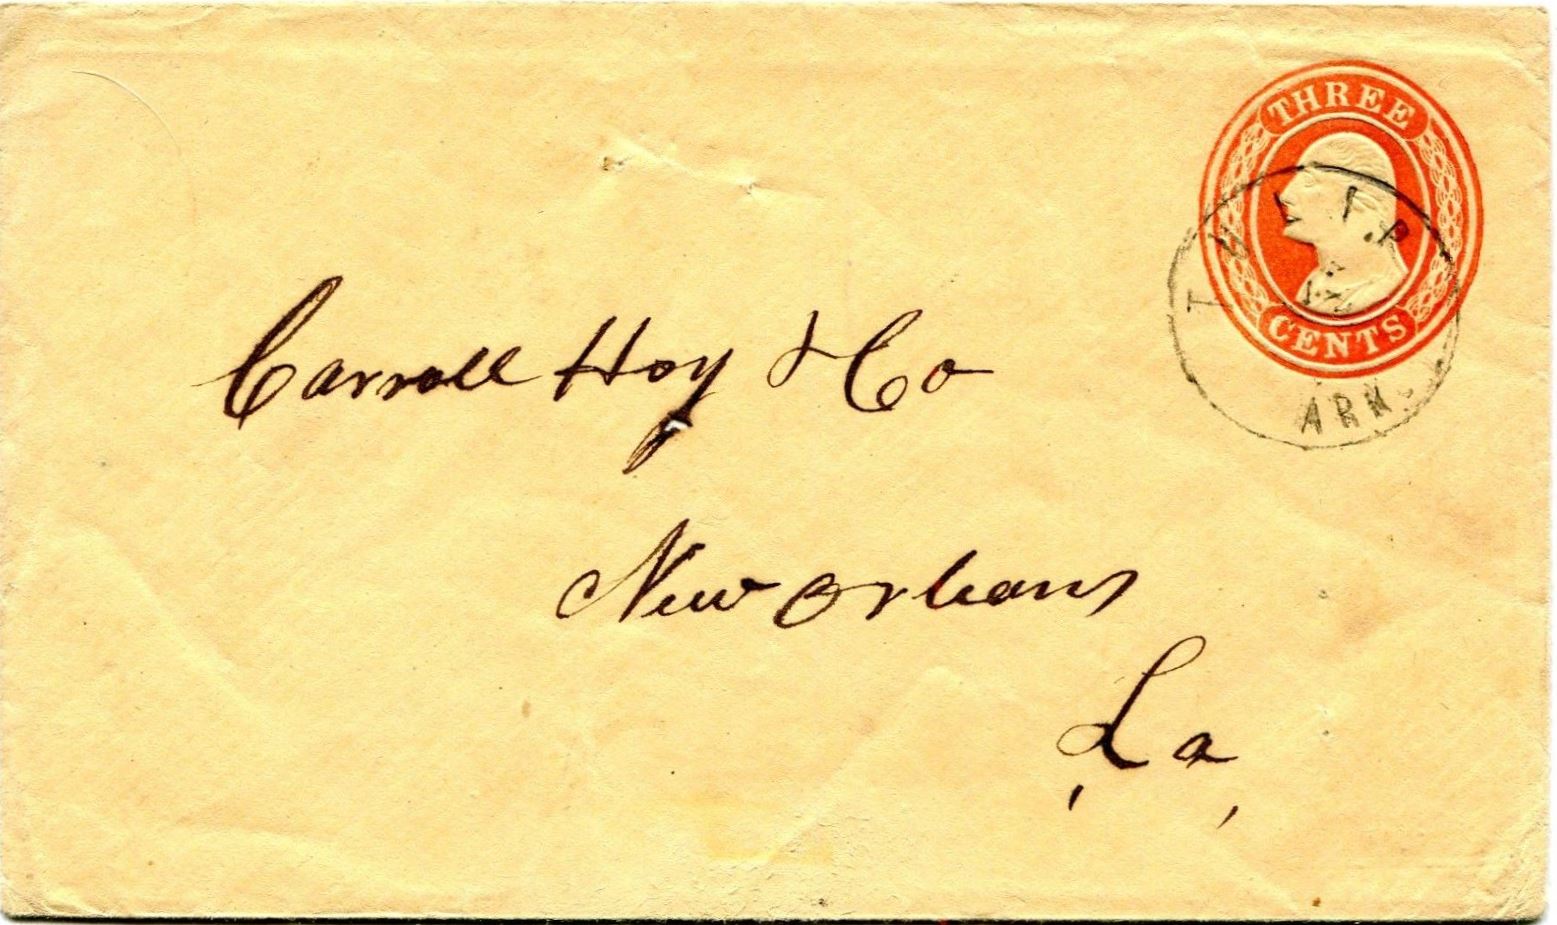 THREE
CENTS
TULIP
ARK.
Carroll Hoy & Co
New Orleans
La